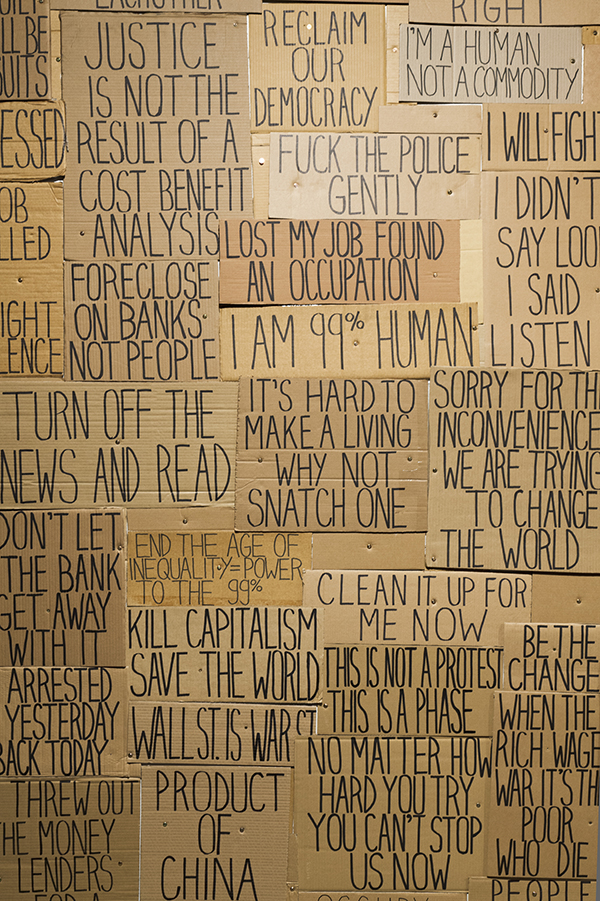 EACH OTHER
RIGHT
LL BE
SUITS
JUSTICE
IS NOT THE
RESULT OF A
COST BENEFIT
ANALYSIS
RECLAIM
OUR
DEMOCRACY
I'M A HUMAN
NOT A COMMODITY
ESSED
FUCK THE POLICE
GENTLY
I WILL FIGHT
OB
LLED
LOST MY JOB FOUND
AN OCCUPATION
I DIDN'T
SAY LOO
I SAID
LISTEN
FORECLOSE
ON BANKS
NOT PEOPLE
IGHT
LENCE
I AM 99% HUMAN
TURN OFF THE
NEWS AND READ
IT'S HARD TO
MAKE A LIVING
WHY NOT
SNATCH ONE
SORRY FOR TH
INCONVENIENCE
WE ARE TRYING
TO CHANGE
THE WORLD
DON'T LET
THE BANK
GET AWAY
WITH IT
END THE AGE OF
INEQUALITY=POWER
TO THE 99%
CLEAN IT UP FOR
ME NOW
KILL CAPITALISM
SAVE THE WORLD
THIS IS NOT A PROTEST
THIS IS A PHASE
BE THE
CHANGE
ARRESTED
YESTERDAY
BACK TODAY
WALL ST. IS WAR ST
WHEN THE
RICH WAGE
WAR IT'S TH
POOR
WHO DIE
NO MATTER HOW
HARD YOU TRY
YOU CAN'T STOP
US NOW
THREW OUT
THE MONEY
LENDERS
FOR A
PRODUCT
OF
CHINA
OCCUPY
PEOPLE